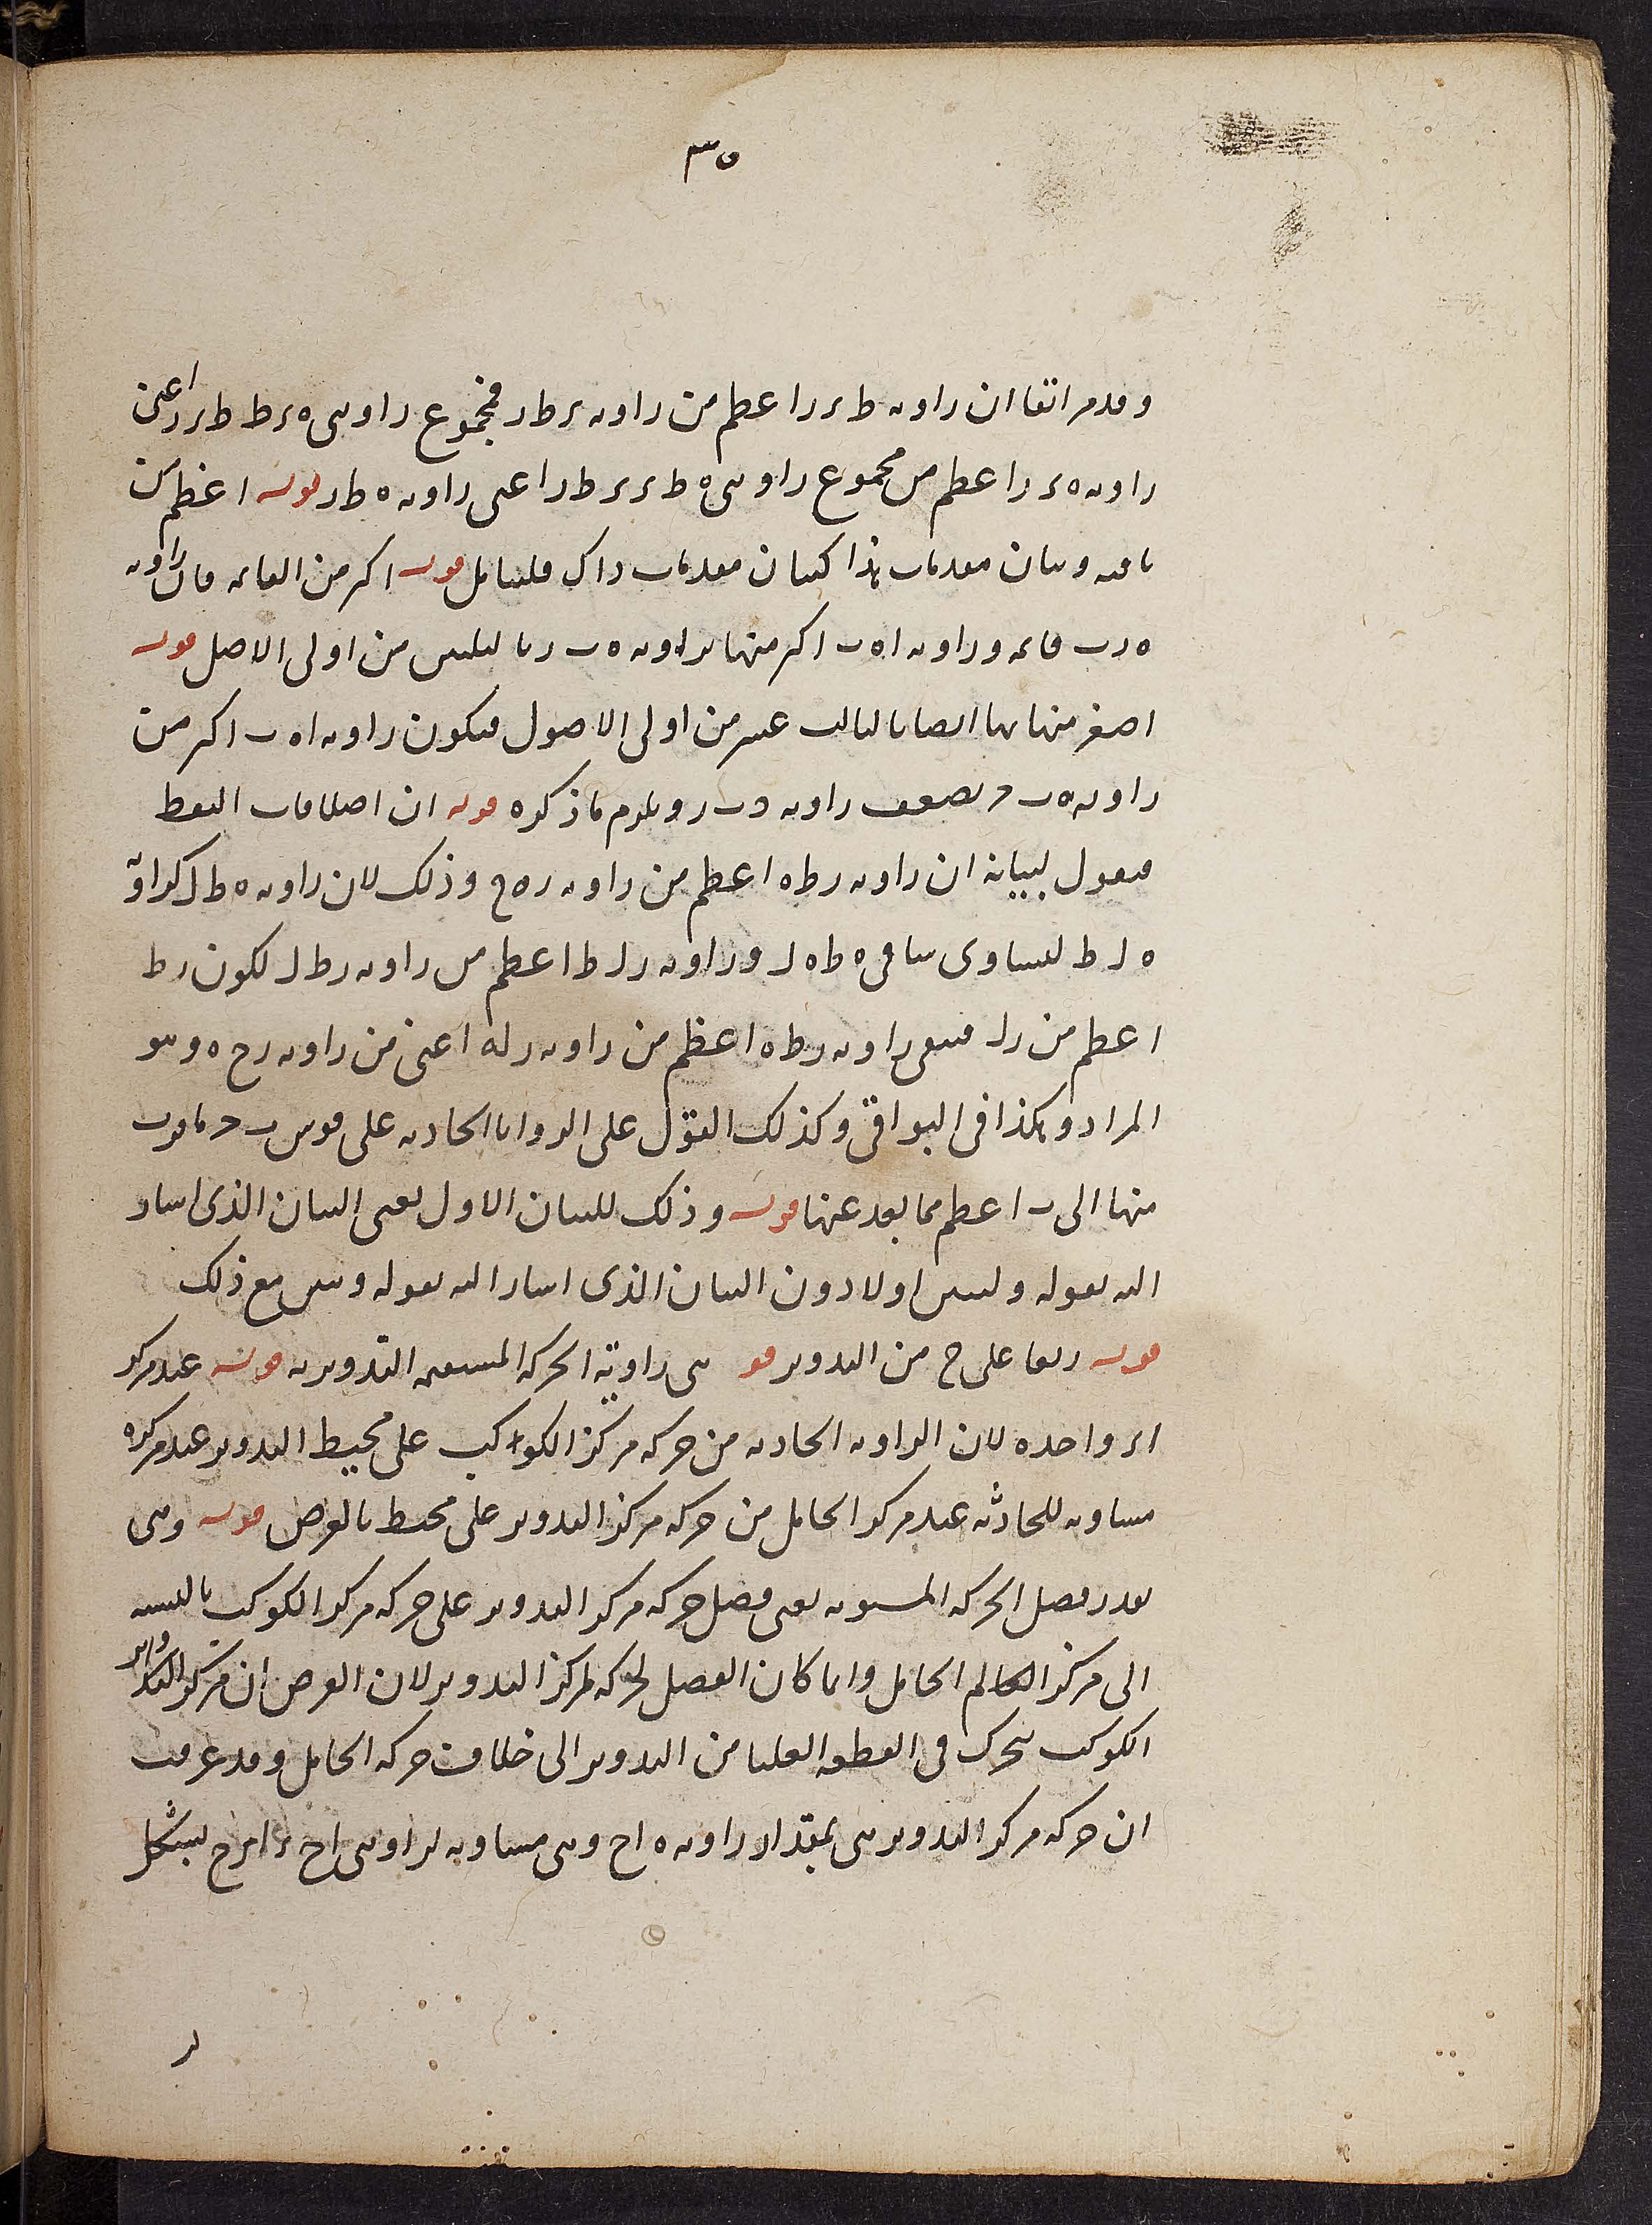 ٣٥
وقد مر انفا ان زاويه ط ر ز اعظم من زاويه ر ط ز فمجموع زاويتى ه ر ط ط ر ز اعنى
زاويه ه ر ز اعظم من مجموع زاويتى ه ط ر ر ط ز اعنى زاويه ه ط ز قوله اعظم من
باقيه وبيان مقدمات هذا كبيان مقدمات ذاك فليتامل قوله اكبر من القائمه فان زاويه
ه د ب قائمه وزاويه ا ه ب اكبر منها بزاويه ه ب د بالثلثين من اولى الاصل قوله
اصغر منها بها ايضا بالثالث عشر من اولى الاصول فيكون زاويه ا ه ب اكبر من
زاويه ه ب د بضعف زاويه د ب ر ويلزم ما ذكره قوله ان اضلافات النقط
فنقول لبيانه ان زاويه ر ط ه اعظم من زاويه ر ه ح وذلك لان زاويه ه ط ل كزاوية
ه ل ط لتساوى ساقى ه ط ه ل وزاويه ر ل ط اعظم من زاويه ر ط ل لكون ر ط
اعظم من ر ل فتبقى زاويه ر ط ه اعظم من زاويه ر ل ه اعنى من زاويه ر ح ه وهو
المراد وهكذا فى البواقى وكذلك القول على الزوايا الحادثه على قوس ب د ما قرب
منها الى ب اعظم مما بعد عنها قوله وذلك للبيان الاول يعنى البيان الذى اشار
اليه بقوله وليبين اولا دون البيان الذى اشار اليه بقوله وتبين مع ذلك
قوله ربعا على ح من التدوير قو هى زاوية الحركه المستقيمه التدويريه قوله عند مركز
ا ر واحده لان الزاويه الحادثه من حركه مركز الكواكب على محيط التدوير عند مركزه
مساويه للحادثه عند مركز الحامل من حركه مركز التدوير على محيطه بالفرض قوله وهى
بقدر فضل الحركه المستويه يعنى فضل حركه مركز التدوير على حركه مركز الكوكب بالنسبه
الى مركز العالم الحامل وانما كان الفضل لحركه لمركز التدوير لان الفرض ان مركز التداوير
الكوكب يتحرك فى القطعه العليا من التدوير الى خلاف حركه الحامل وقد عرفت
ان حركه مركز التدوير هى بمقدار زاويه ه ا ح وهى مساويه لزاويتى ا ح ر ا ر ح بشكل
لر